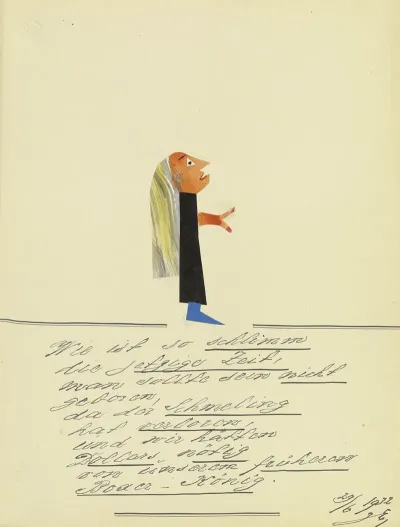 Wie ist so schlimm
die jetzige Zeit,
man sollte sein nicht
geboren,
da der Schmeling
hat verloren,
und wir hätten
Dollars nötig
von unserem früheren
Boxer-König.
29/6 1932